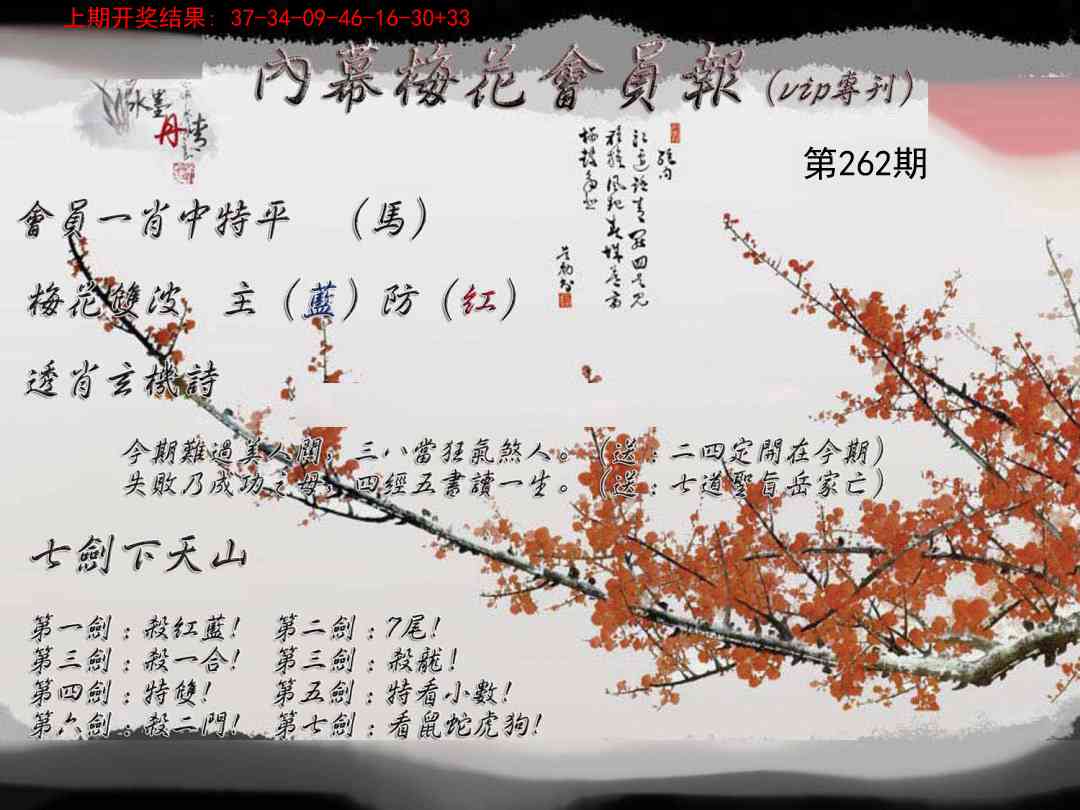 上期开奖结果: 37-34-09-46-16-30+33
內幕梅花會員報(vip專刊)
水墨
丹青
第262期
會員一肖中特平 (馬)
梅花雙波 主(藍)防(紅)
透肖玄機詩
今期難過美人關,三八當狂氣煞人。(送:二四定開在今期)
失敗乃成功之母,四經五書讀一生。(送:七道聖旨岳家亡)
七劍下天山
第一劍:殺紅藍! 第二劍:7尾!
第三劍:殺一合! 第三劍:殺龍!
第四劍:特雙! 第五劍:特看小數!
第六劍:殺二門! 第七劍:看鼠蛇虎狗!